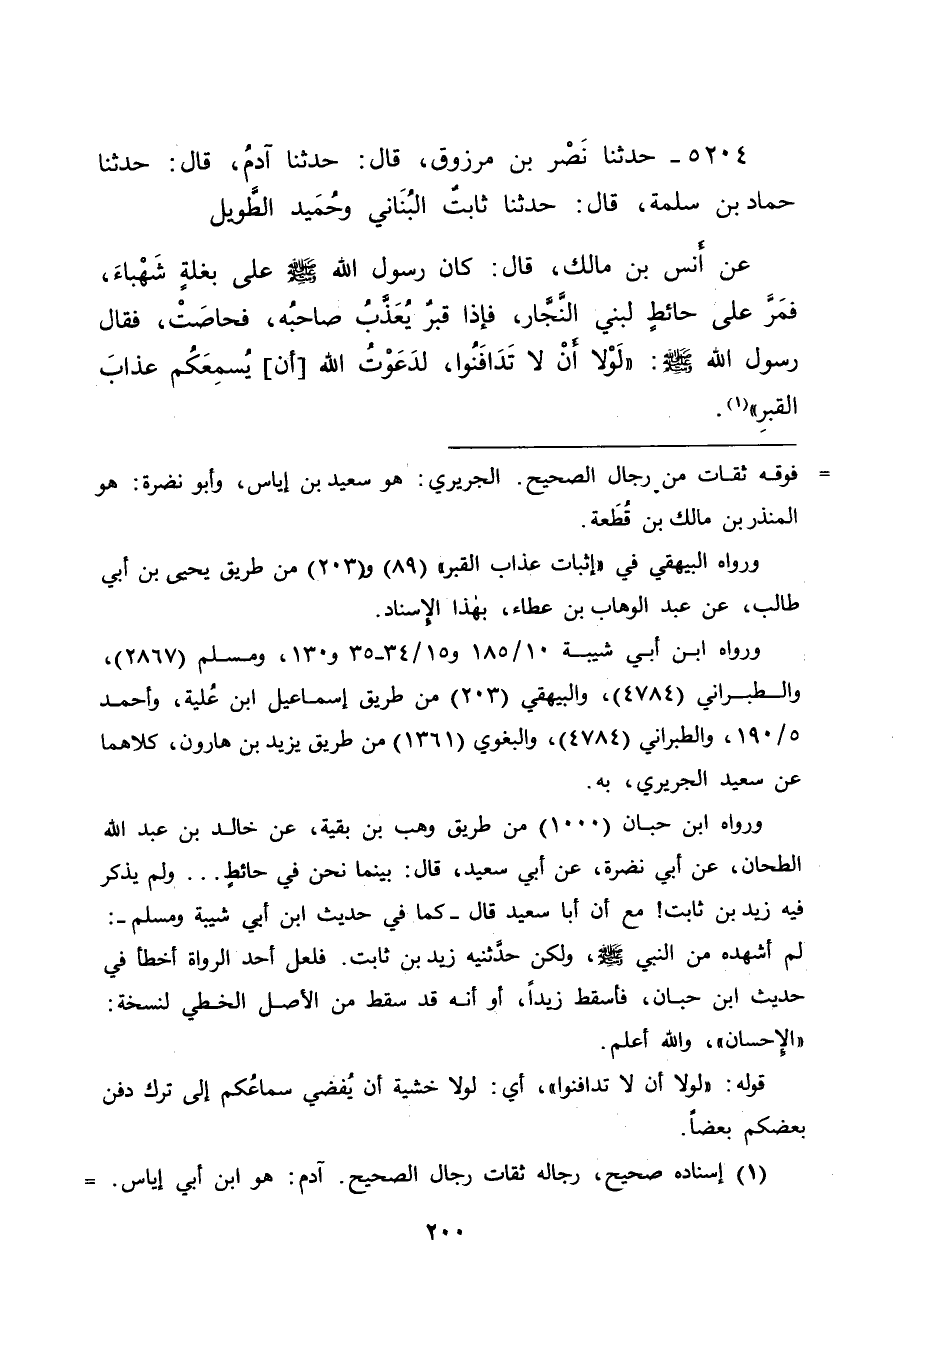 ٥٢٠٤ ـ حدثنا نَصْر بن مرزوق، قال: حدثنا آدمُ، قال: حدثنا
حماد بن سلمة، قال: حدثنا ثابتٌ البُنَاني وحُمَيد الطَّويل
عن أَنس بن مالك، قال: كان رسول الله ﷺ على بغلةٍ شَهْباءَ،
فمَرَّ على حائطٍ لبني النَّجَّار، فإذا قبرٌ يُعَذَّبُ صاحبُه، فحاصَتْ، فقال
رسول الله ﷺ: «لَوْلا أَنْ لا تَدَافَنُوا، لدَعَوْتُ الله [أن] يُسمِعَكُم عذابَ
القبرِ»(١).
= فوقه ثقات من رجال الصحيح. الجريري: هو سعيد بن إياس، وأبو نضرة: هو
المنذر بن مالك بن قُطَعة.
ورواه البيهقي في «إثبات عذاب القبر» (٨٩) و(٢٠٣) من طريق يحيى بن أبي
طالب، عن عبد الوهاب بن عطاء، بهٰذا الإِسناد.
ورواه ابن أبي شيبة ١٨٥/١٠ و٣٤/١٥ـ٣٥ و١٣٠، ومسلم (٢٨٦٧)،
والطبراني (٤٧٨٤)، والبيهقي (٢٠٣) من طريق إسماعيل ابن عُلية، وأحمد
١٩٠/٥، والطبراني (٤٧٨٤)، والبغوي (١٣٦١) من طريق يزيد بن هارون، كلاهما
عن سعيد الجريري، به.
ورواه ابن حبان (١٠٠٠) من طريق وهب بن بقية، عن خالد بن عبد الله
الطحان، عن أبي نضرة، عن أبي سعيد، قال: بينما نحن في حائطٍ... ولم يذكر
فيه زيد بن ثابت! مع أن أبا سعيد قال ـ كما في حديث ابن أبي شيبة ومسلم ـ:
لم أشهده من النبي ﷺ، ولكن حدَّثنيه زيد بن ثابت. فلعل أحد الرواة أخطأ في
حديث ابن حبان، فأسقط زيداً، أو أنه قد سقط من الأصل الخطي لنسخة:
«الإِحسان»، والله أعلم.
قوله: «لولا أن لا تدافنوا»، أي: لولا خشية أن يُفضي سماعُكم إلى ترك دفن
بعضكم بعضاً.
(١) إسناده صحيح، رجاله ثقات رجال الصحيح. آدم: هو ابن أبي إياس. =
٢٠٠